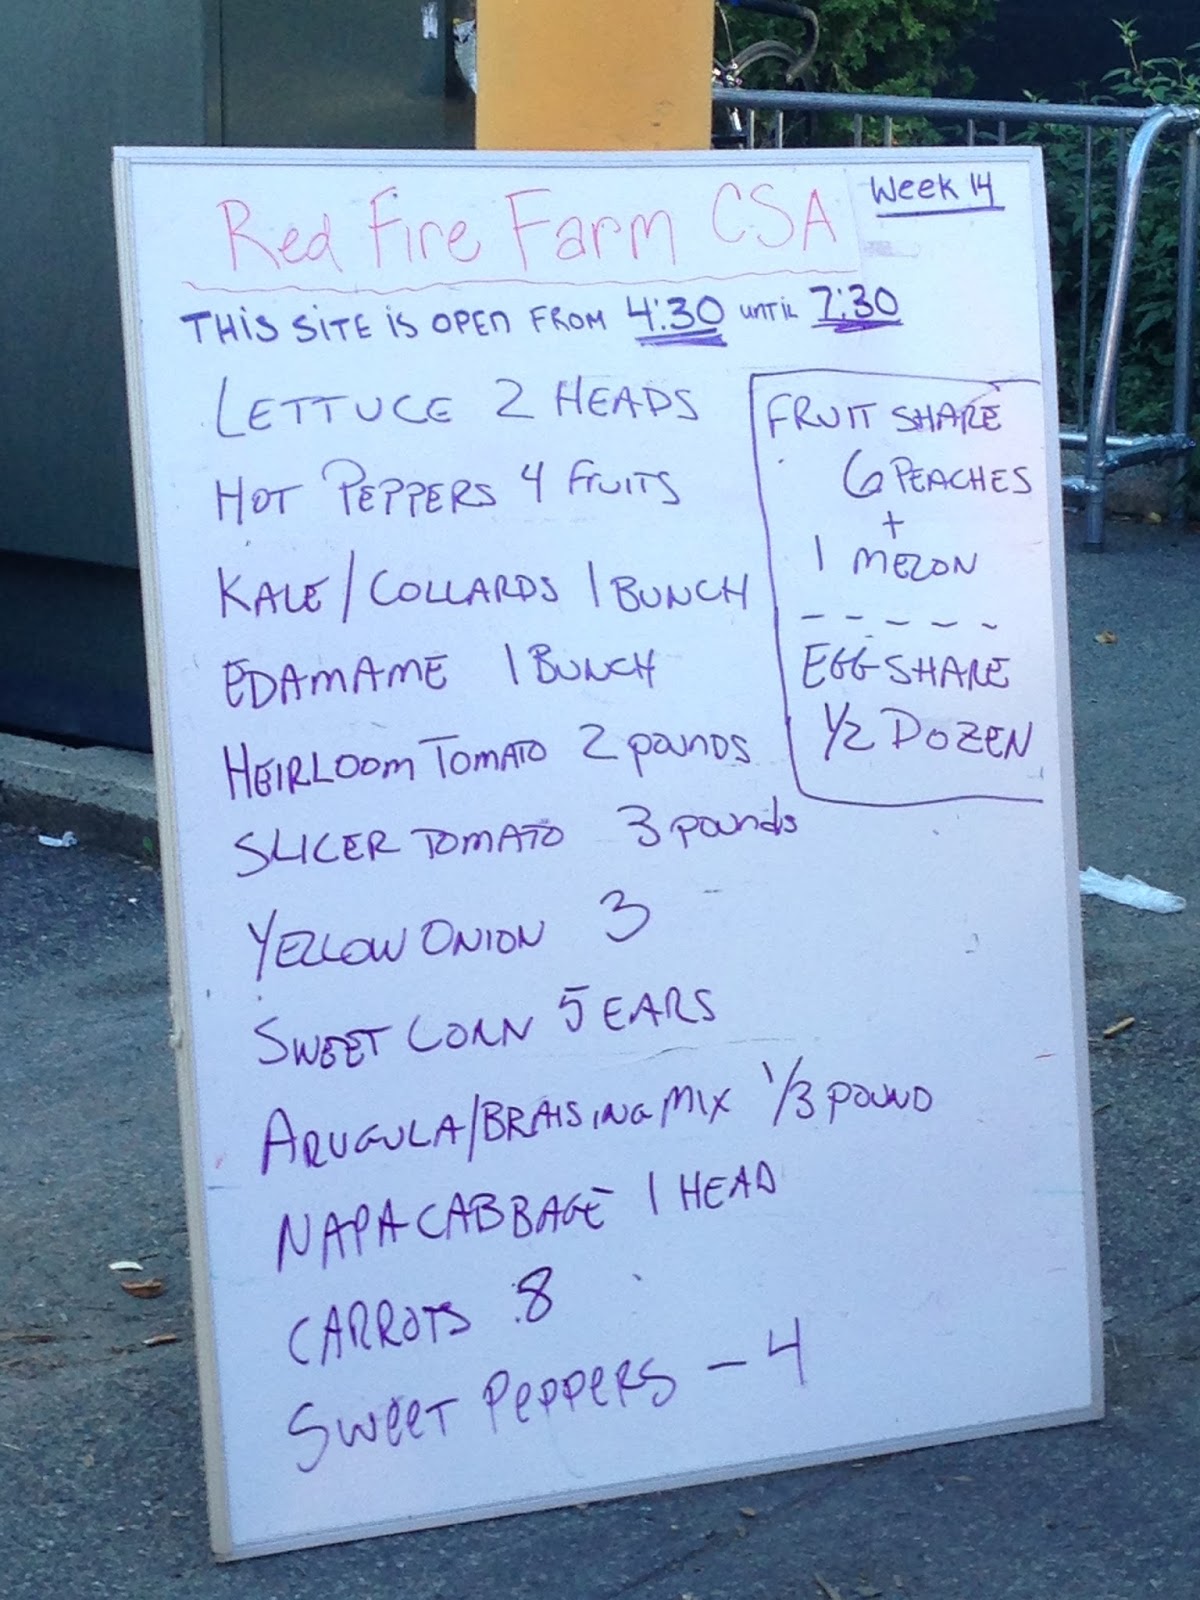 Red Fire Farm CSA
Week 14
THIS SITE IS OPEN FROM 4:30 UNTIL 7:30
LETTUCE 2 HEADS
HOT PEPPERS 4 FRUITS
KALE/COLLARDS 1 BUNCH
EDAMAME 1 BUNCH
HEIRLOOM TOMATO 2 POUNDS
SLICER TOMATO 3 pounds
YELLOW ONION 3
SWEET CORN 5 EARS
ARUGULA/BRAISING MIX 1/3 POUND
NAPA CABBAGE 1 HEAD
CARROTS 8
SWEET PEPPERS - 4
FRUIT SHARE
6 PEACHES
+
1 MELON
- - - - -
EGG SHARE
1/2 DOZEN